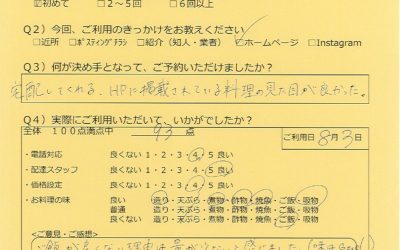 ☑初めて □2～5回 □6回以上
Q2）今回、ご利用のきっかけをお教えください
□近所 □ポスティングチラシ □紹介（知人・業者） ☑ホームページ □Instagram
Q3）何が決め手となって、ご予約いただけましたか？
宅配してくれる、HPに掲載されている料理の見た目が良かった。
Q4）実際にご利用いただいて、いかがでしたか？
全体 100点満点中 93 点
ご利用日 8月3日
・電話対応 良くない 1・2・3・4・5 良い
・配達スタッフ 良くない 1・2・3・4・5 良い
・価格設定 良くない 1・2・3・4・5 良い
・お料理の味 良い 造り・天ぷら・煮物・酢物・焼魚・ご飯・吸物
普通 造り・天ぷら・煮物・酢物・焼魚・ご飯・吸物
良くない 造り・天ぷら・煮物・酢物・焼魚・ご飯・吸物
＜ご意見・ご感想＞
ご飯が良くない理由は量が少ないと感じました。